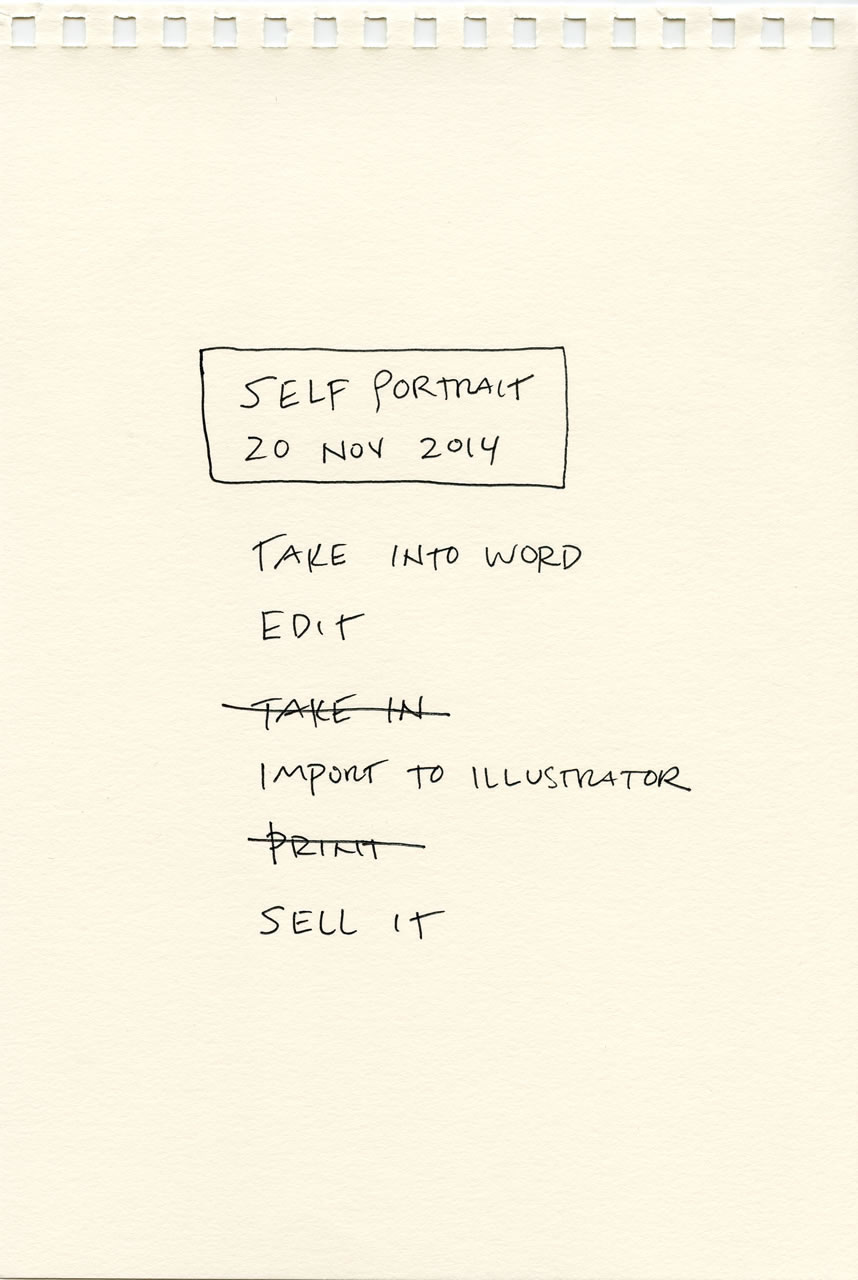 SELF PORTRAIT
20 NOV 2014
TAKE INTO WORD
EDIT
TAKE IN
IMPORT TO ILLUSTRATOR
PRINT
SELL IT